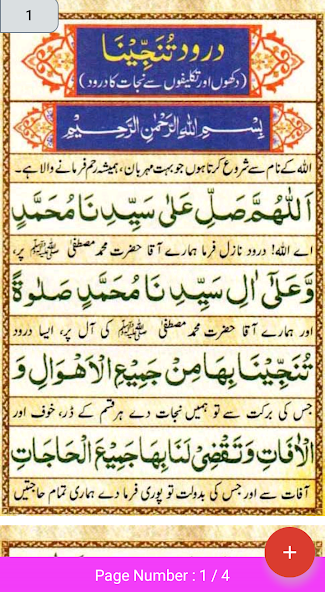 1
درود تُنَجِّیْنَا
(دکھوں اور تکلیفوں سے نجات کا درود)
بِسْمِ اللّٰهِ الرَّحْمٰنِ الرَّحِيْمِ
اللہ کے نام سے شروع کرتا ہوں جو بہت مہربان، ہمیشہ رحم فرمانے والا ہے۔
اَللّٰهُمَّ صَلِّ عَلٰى سَيِّدِنَا مُحَمَّدٍ
اے اللہ! درود نازل فرما ہمارے آقا حضرت محمد مصطفیٰ ﷺ پر،
وَّعَلٰٓى اٰلِ سَيِّدِنَا مُحَمَّدٍ صَلٰوةً
اور ہمارے آقا حضرت محمد مصطفیٰ ﷺ کی آل پر، ایسا درود
تُنَجِّيْنَا بِهَا مِنْ جَمِيْعِ الْاَهْوَالِ وَ
جس کی برکت سے تو ہمیں نجات دے ہر قسم کے ڈر، خوف اور
الْاٰفَاتِ وَتَقْضِيْ لَنَا بِهَا جَمِيْعَ الْحَاجَاتِ
آفات سے اور جس کی بدولت تو پوری فرما دے ہماری تمام حاجتیں
+
Page Number : 1 / 4